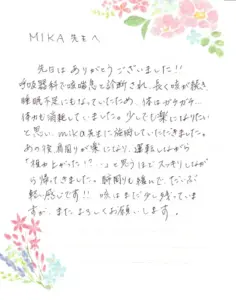 MIKA 先生へ
先日はありがとうございました!!
呼吸器科で咳喘息と診断され、長く咳が続き、
睡眠不足にもなっていたため、体はガチガチ…
体力も消耗していました。少しでも楽になりたい
と思い、mika先生に施術していただきました。
あの後、肩周りが楽になり、運転しながら
「班上がった!?…」と思うほどスッキリしながら
帰ってきました。胸周りも緩んで、だいぶ
軽い感じです!! 咳はまだ少し残っていま
すが、またよろしくお願いします。